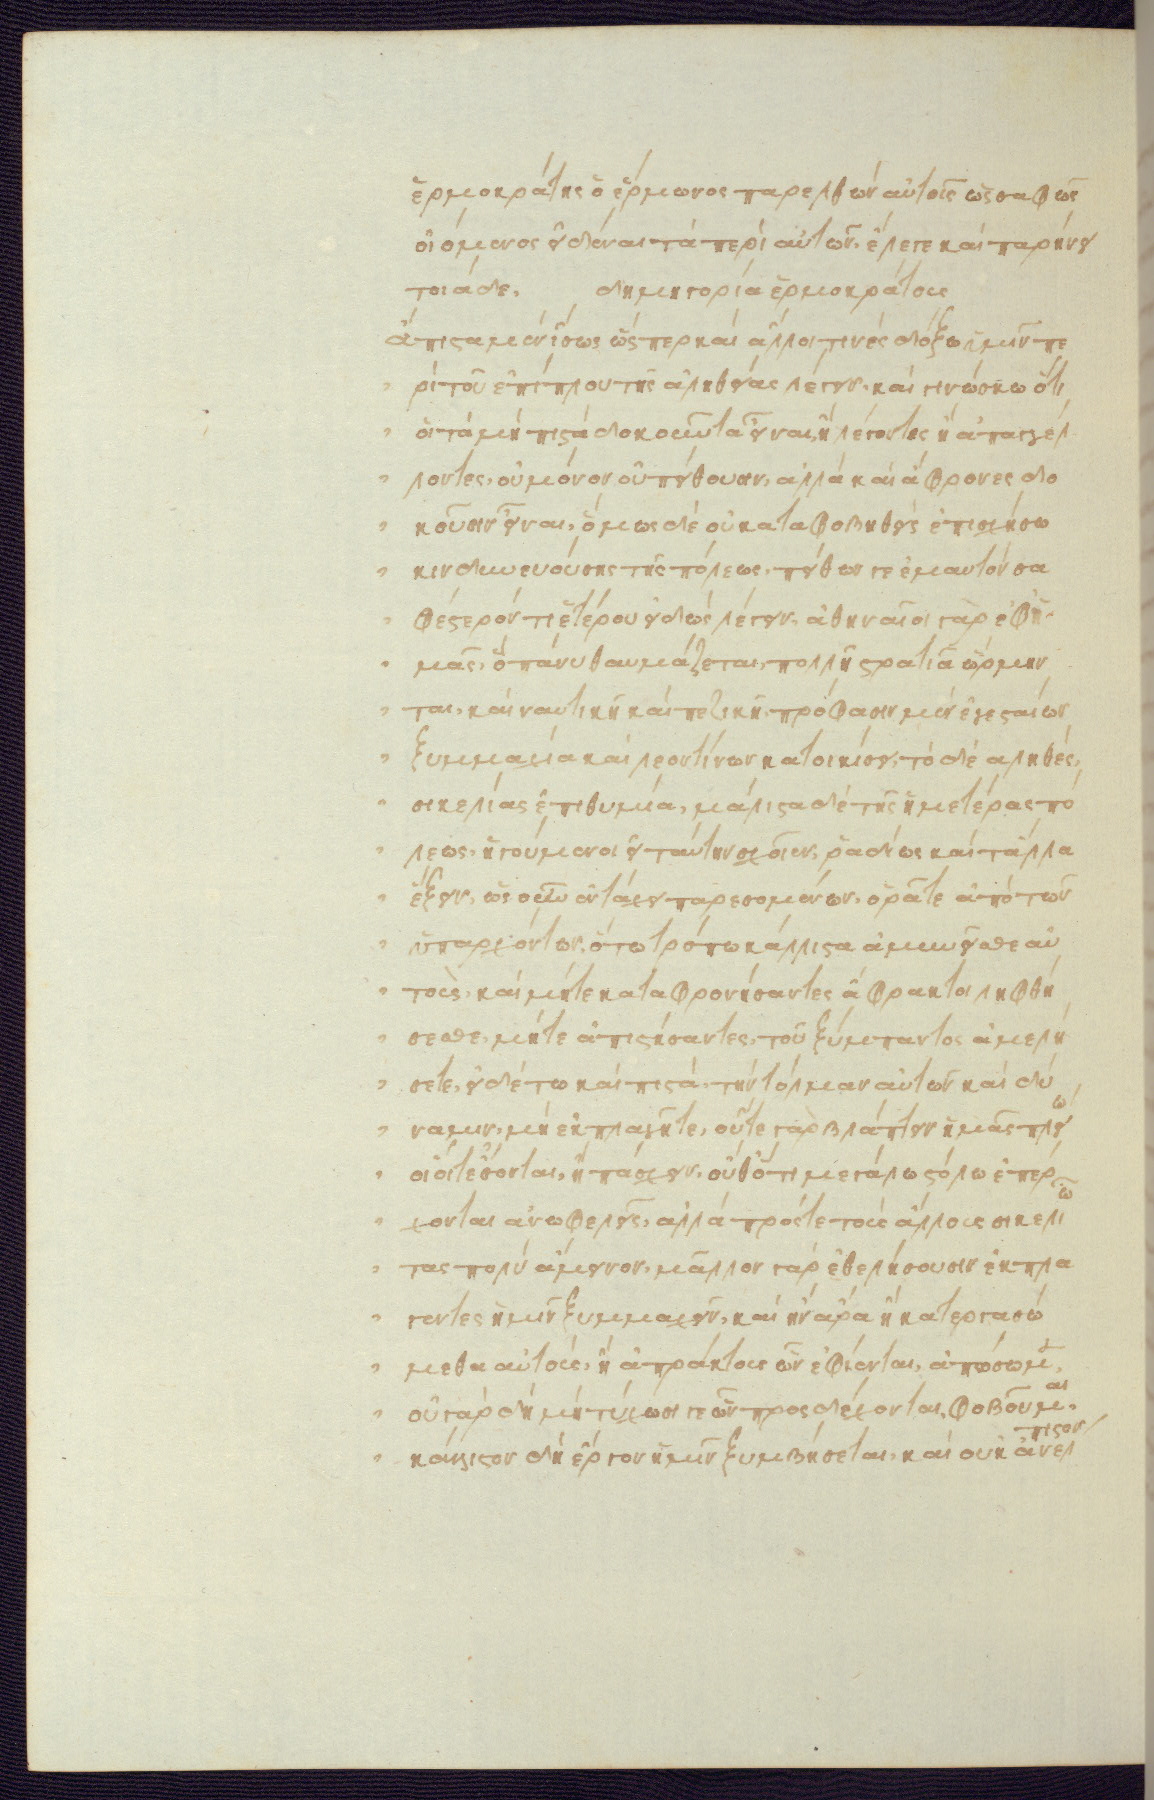 ἑρμοκράτης ὁ ἕρμωνος παρελθὼν αὐτοῖς ὡς σαφῶς
οἰόμενος εἰδέναι τὰ περὶ αὐτῶν, ἔλεγε καὶ παρήνει
τοιάδε. δημηγορία ἑρμοκράτους
ἄπιστα μὲν ἴσως ὥσπερ καὶ ἄλλοι τινὲς δόξω ὑμῖν πε
ρὶ τοῦ ἐπίπλου τῆς ἀληθείας λέγειν, καὶ γινώσκω ὅτι
οἱ τὰ μὴ πιστὰ δοκοῦντα εἶναι, ἢ λέγοντες ἢ ἀπαγγέλ
λοντες, οὐ μόνον οὐ πείθουσιν, ἀλλὰ καὶ ἄφρονες δο
κοῦσιν εἶναι, ὅμως δὲ οὐ καταφοβηθεὶς ἐπισχήσω
κινδυνευούσης τῆς πόλεως, πείθων γε ἐμαυτὸν σα
φέστερόν τι ἑτέρου εἰδὼς λέγειν, ἀθηναῖοι γὰρ ἐφ ἡ
μᾶς, ὃ πάνυ θαυμάζεται, πολλῆ στρατιᾶ ὥρμην
ται, καὶ ναυτικῆ καὶ πεζικῆ, πρόφασιν μὲν ἐγεσταίων
ξυμμαχία καὶ λεοντίνων κατοικίσει, τὸ δὲ ἀληθές,
σικελίας ἐπιθυμία, μάλιστα δὲ τῆς ἡμετέρας πό
λεως, ἡγούμενοι εἰ ταύτην σχοῖεν, ῥαδίως καὶ τἄλλα
ἕξειν, ὡς οὖν ἐν τάχει παρεσομένων, ὁρᾶτε ἀπὸ τῶν
ὑπαρχόντων, ὅτω τρόπω κάλλιστα ἀμυνεῖσθε αὐ
τοὺς, καὶ μήτε καταφρονήσαντες ἄφρακτοι ληφθή
σεσθε, μήτε ἀπιστήσαντες, τοῦ ξύμπαντος ἀμελή
σετε, εἰ δέ τω καὶ πιστά, τὴν τόλμαν αὐτῶν καὶ δύ
ναμιν, μὴ ἐκπλαγῆτε, οὔτε γὰρ βλάπτειν ἡμᾶς πλείω
οἷοί τε ἔσονται, ἢ πάσχειν, οὔθ ὅτι μεγάλω στόλω ἐπέρ
χονται ἀνωφελεῖς, ἀλλὰ πρός τε τοὺς ἄλλους σικελιώ
τας πολὺ ἄμεινον, μᾶλλον γὰρ ἐθελήσουσιν ἐκπλα
γέντες ἡμῖν ξυμμαχεῖν, καὶ ἢν ἄρα ἢ κατεργασώ
μεθα αὐτούς, ἢ ἀπράκτους ὧν ἐφίενται, ἀπώσωμεν,
οὐ γὰρ δὴ μὴ τύχωσί γε ὧν προσδέχονται, φοβοῦμαι,
κάλλιστον δὴ ἔργον ἡμῖν ξυμβήσεται, καὶ οὐκ ἀνέλπιστον